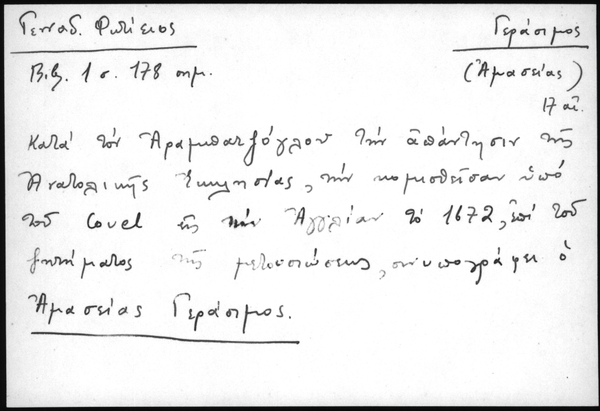 Γενναδ. Φώτιειος
Γεράσιμος
Βιβ. 1 σ. 178 σημ.
(Ἀμασείας)
17 αἰ.
Κατά τόν Ἀραμπατζόγλου τήν ἀπάντησιν τῆς
Ἀνατολικῆς Ἐκκλησίας, τήν κομισθεῖσαν ὑπό
τοῦ Covel εἰς τήν Ἀγγλίαν τό 1672, ἐπί τοῦ
ζητήματος τῆς μετουσιώσεως, συνυπογράφει ὁ
Ἀμασείας Γεράσιμος.